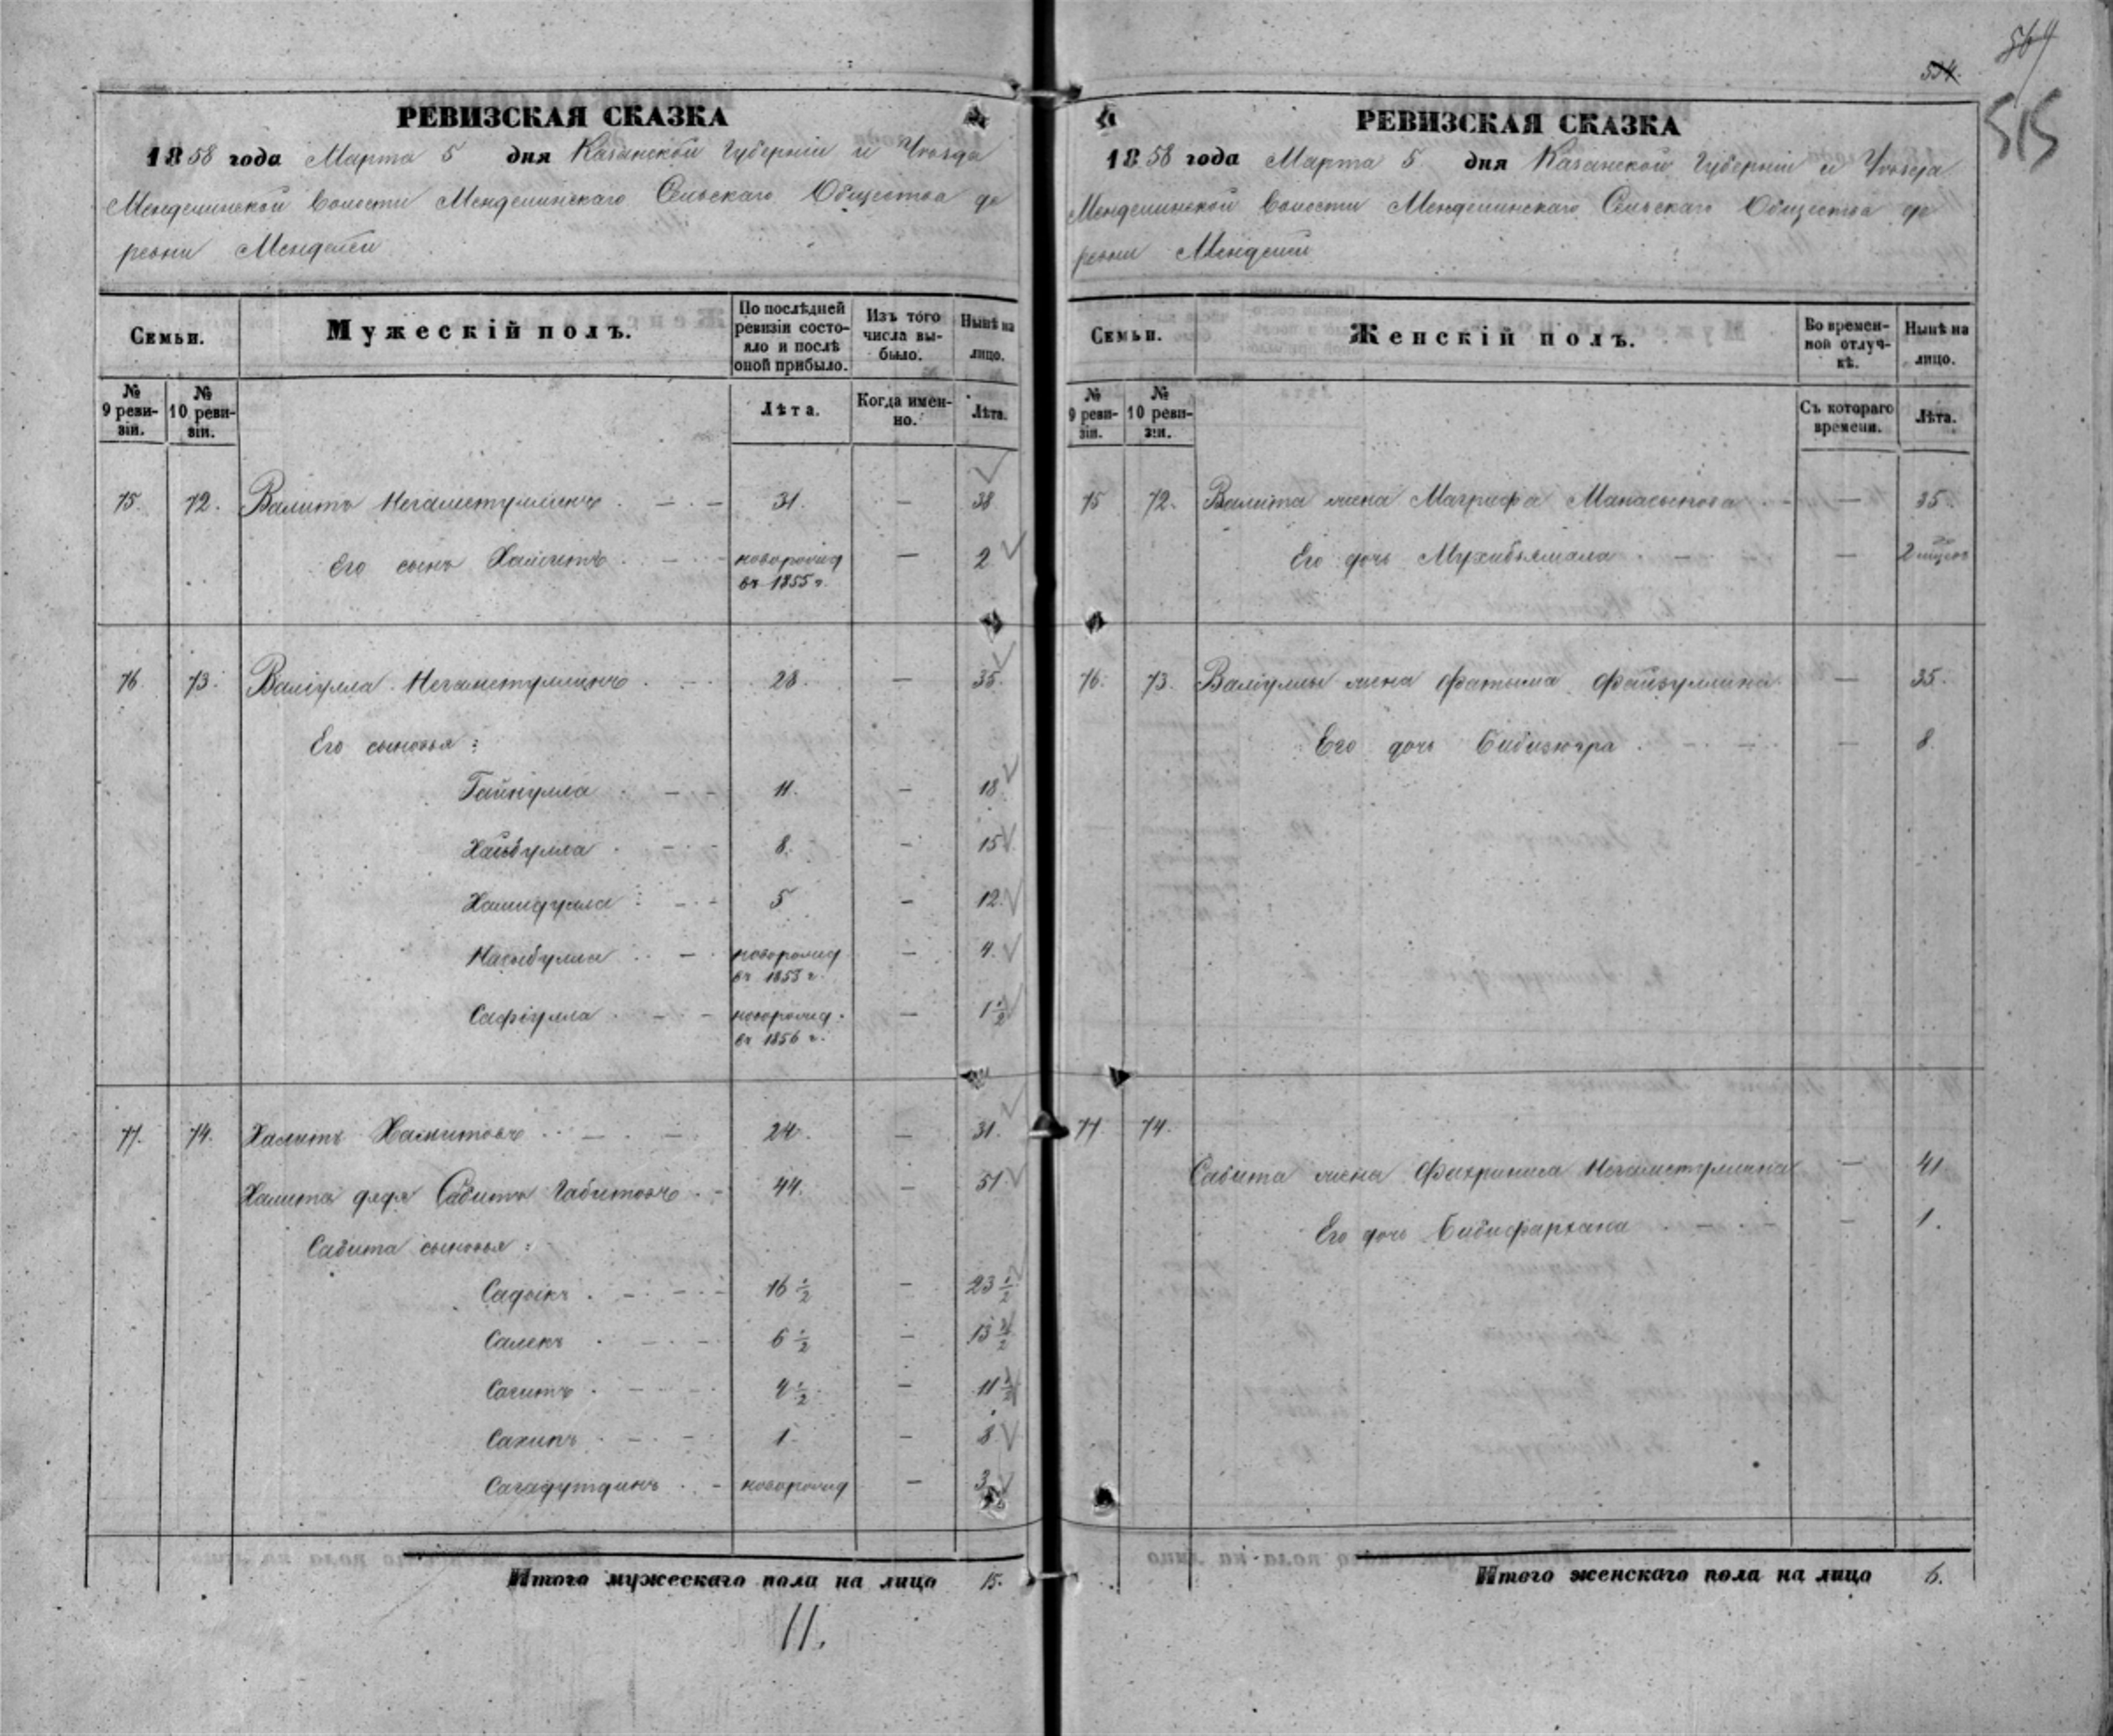 554.
564
515
РЕВИЗСКАЯ СКАЗКА
1858 года Марта 5 дня Казанской Губернии и Уѣзда
Менделинской Волости Менделинскаго Сельскаго Общества де
ревни Менделей
Семьи.
Мужескій полъ.
По послѣдней ревизіи состояло и послѣ оной прибыло.
Изъ того числа выбыло.
Нынѣ на лицо.
№ 9 ревизіи.
№ 10 ревизіи.
Лѣта.
Когда именно.
Лѣта.
75. 72. Валитъ Негаметуллинъ 31. — 38
Его сынъ Халитъ новорожд въ 1855 г. — 2
76. 73. Валіулла Негаметуллинъ 28. — 35.
Его сыновья:
Гайнулла 11. — 18
Хабибулла 8. — 15
Хамидулла 5 — 12
Насыбулла новорожд въ 1853 г. — 4.
Сафіулла новорожд. въ 1856 г. — 1 1/2
77. 74. Халитъ Хамитовъ 24. — 31.
Халита дядя Сабитъ Габитовъ 44. — 51
Сабита сыновья:
Садыкъ 16 1/2 — 23 1/2
Салехъ 6 1/2 — 13 1/2
Сагитъ 4 1/2 — 11 1/2
Сахипъ 1 — 8
Сагадутдинъ новорожд — 3
Итого мужескаго пола на лицо 15.
11.
РЕВИЗСКАЯ СКАЗКА
1858 года Марта 5 дня Казанской Губерніи и Уѣзда
Менделинской Волости Менделинскаго Сельскаго Общества де
ревни Менделей
Семьи.
Женскій полъ.
Во временной отлучкѣ.
Нынѣ на лицо.
№ 9 ревизіи.
№ 10 ревизіи.
Съ котораго времени.
Лѣта.
75 72. Валита жена Магрифа — 35.
Его дочь — 2
76. 73. Валіуллы жена Фатыма Файзуллина — 35.
Его дочь Бибизюгра — 8.
77 74.
Сабита жена Фахриниса Негаметуллина — 41
Его дочь Бибифархана — 1.
Итого женскаго пола на лицо 6.